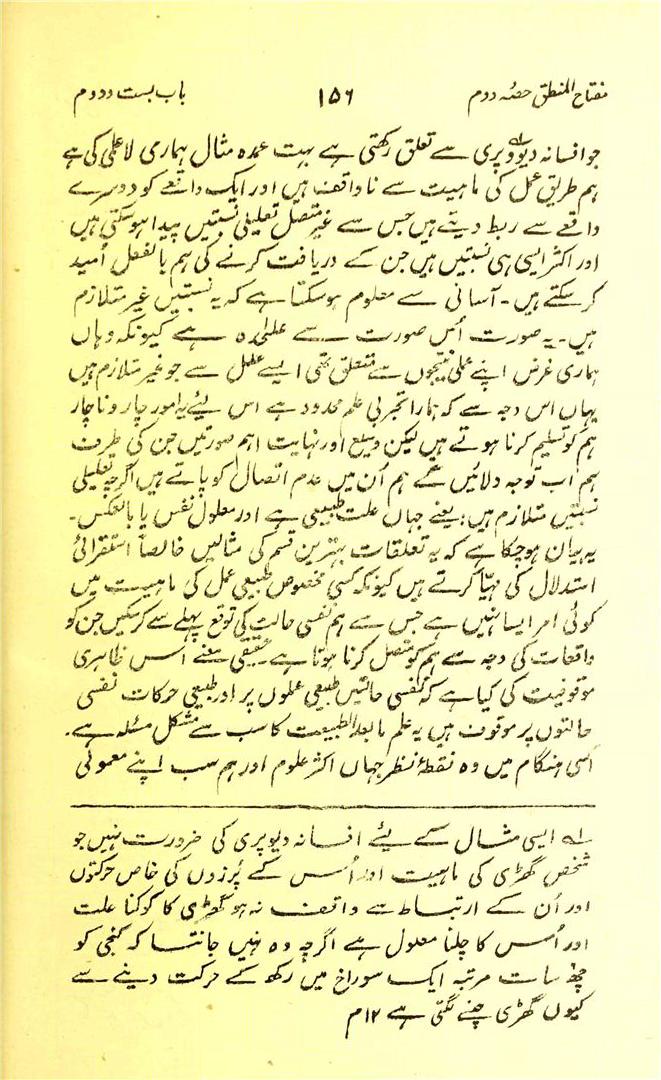 مفتاح المنطق حصہ دوم ۱۵۶ باب بست و دوم
جو افسانہ دیو و پری سے تعلق رکھتی ہے بہت عمدہ مثال ہماری لاعلمی کی ہے
ہم طریق عمل کی ماہیت سے ناواقف ہیں اور ایک واقعے کو دوسرے
واقعے سے ربط دیتے ہیں جس سے غیر متصل تعلیلی نسبتیں پیدا ہو سکتی ہیں
اور اکثر ایسی ہی نسبتیں ہیں جن کے دریافت کرنے کی ہم بالفعل اُمید
کر سکتے ہیں۔ آسانی سے معلوم ہو سکتا ہے کہ یہ نسبتیں غیر متلازم
ہیں۔ یہ صورت اُس صورت سے علٰحدہ ہے کیونکہ وہاں
ہماری غرض اپنے عملی نتیجوں سے متعلق تھی ایسے عمل سے جو غیر متلازم ہیں
یہاں اس وجہ سے کہ ہمارا تجربی علم محدود ہے اس لیئے یہ امور چار و ناچار
ہم کو تسلیم کرنا ہوتے ہیں لیکن وسیع اور نہایت اہم صورتیں جن کی طرف
ہم اب توجہ دلائیں گے ہم اُن میں عدم اتصال کو پاتے ہیں اگرچہ تعلیلی
نسبتیں متلازم ہیں؛ یعنے جہاں علت طبیعی ہے اور معلول نفس یا بالعکس۔
یہ بیان ہو چکا ہے کہ یہ تعلقات بہترین قسم کی مثالیں خالصاً استقرائی
استدلال کی مہیّا کرتے ہیں کیونکہ کسی مخصوص طبیعی عمل کی ماہیت میں
کوئی امر ایسا نہیں ہے جس سے ہم نفسی حالت کی توقع پہلے سے کر سکیں جن کو
واقعات کی وجہ سے ہم کو متصل کرنا ہوتا ہے۔ حقیقی معنے اس ظاہری
موقوفیت کی کیا ہے کہ نفسی حالتیں طبیعی عملوں پر اور طبیعی حرکات نفسی
حالتوں پر موقوف ہیں یہ علم مابعد الطبیعت کا سب سے مشکل مسئلہ ہے۔
اسی ہنگام میں وہ نقطۂ نظر جہاں اکثر علوم اور ہم سب اپنے معمولی
لہ ایسی مثال کے لیئے افسانہ دیو پری کی ضرورت نہیں جو
شخص گھڑی کی ماہیت اور اُس کے پُرزوں کی خاص حرکتوں
اور اُن کے ارتباط سے واقف نہ ہو گھڑی کا کوکنا علت
اور اُس کا چلنا معلول ہے اگرچہ وہ نہیں جانتا کہ کنجی کو
چھ سات مرتبہ ایک سوراخ میں رکھ کے حرکت دینے سے
کیوں گھڑی چلنے لگتی ہے ۱۲ م